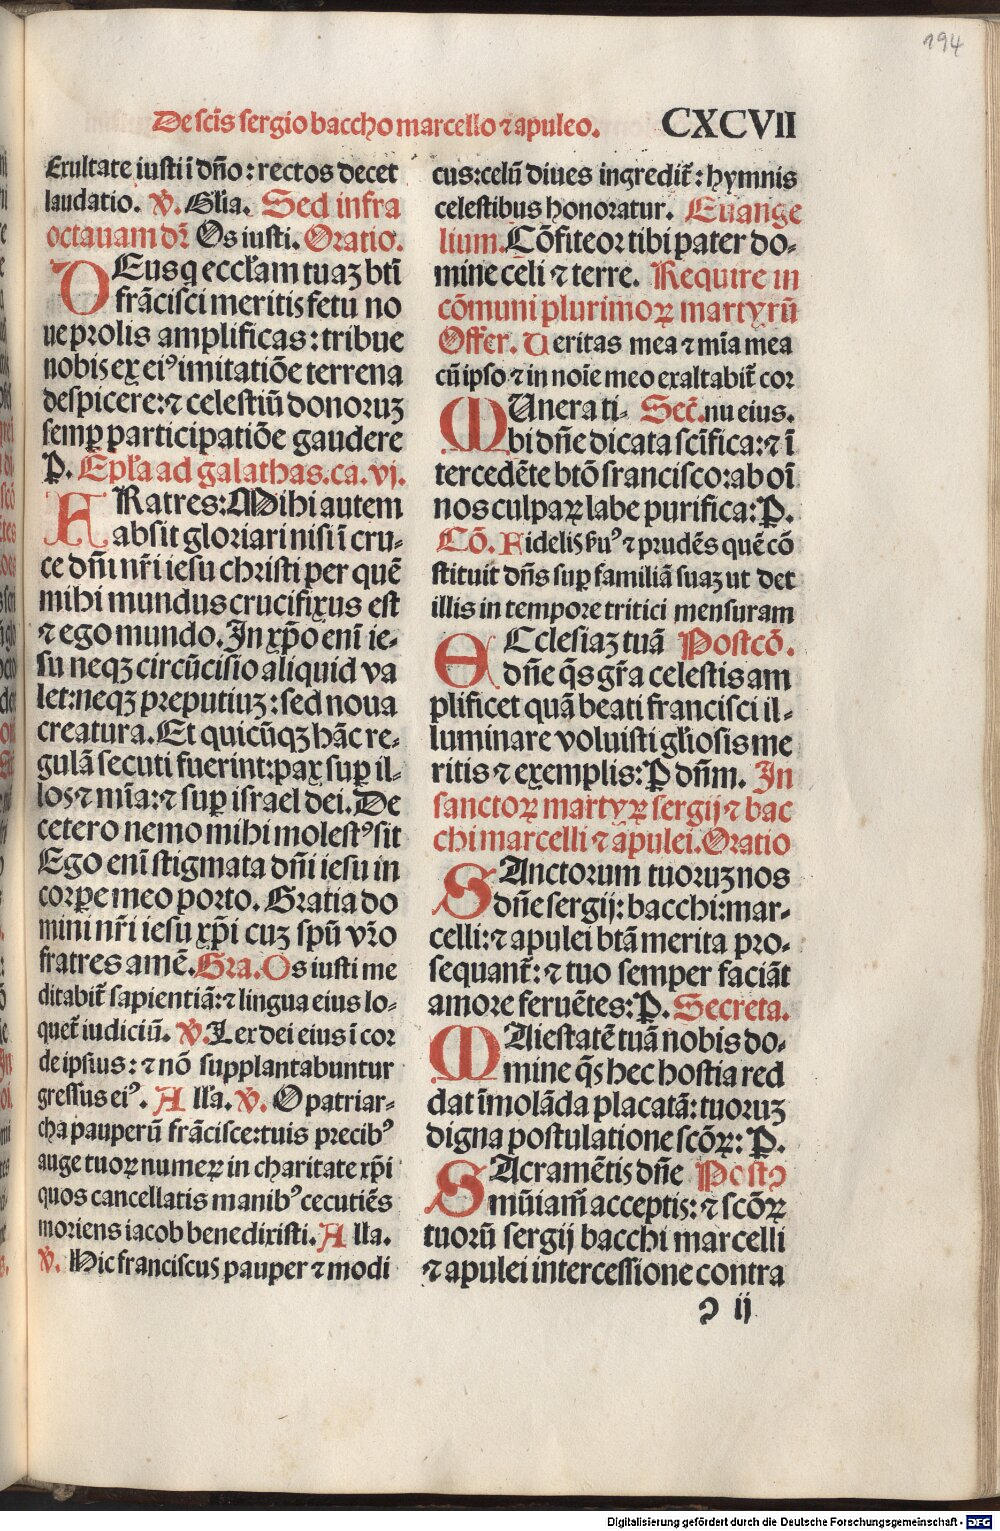 194
De scīs sergio baccho marcello ⁊ apuleo. CXCVII
Exultate iusti ī dño : rectos decet
laudatio. ℣. Glīa. Sed infra
octauam dr̄ Os iusti. Oratio.
DEus q eccl'am tuaȝ btī
frācisci meritis fetu no
ue prolis amplificas : tribue
nobis ex eiꝰ imitatiōe terrena
despicere: ⁊ celestiū donoruȝ
semꝑ participatiōe gaudere
P. Epl'a ad galathas. ca. vj.
FRatres: Mihi autem
absit gloriari nisi ī cru-
ce dñi nr̄i iesu christi per quē
mihi mundus crucifixus est
⁊ ego mundo. In xp̄o eni ie-
su neqȝ circūcisio aliquid va
let: neqȝ preputiuȝ : sed noua
creatura. Et quicūqȝ hāc re-
gulā secuti fuerint: pax suꝑ il-
los ⁊ mīa: ⁊ suꝑ israel dei. De
cetero nemo mihi molestꝰ sit
Ego eni stigmata dñi iesu in
corꝑe meo porto. Gratia do
mini nr̄i iesu xp̄i cuȝ spū vr̄o
fratres amē. Gra. Os iusti me
ditabit̄ sapientiā: ⁊ lingua eius lo-
quet̄ iudiciū. ℣. Lex dei eius ī cor
de ipsius : ⁊ nō supplantabuntur
gressus eiꝰ. All'a. ℣. O patriar-
cha pauperū frācisce: tuis precibꝰ
auge tuoꝝ numeꝝ in charitate xp̄i
quos cancellatis manibꝰ cecutiēs
moriens iacob benedixisti. Alla.
℣. Hic franciscus pauper ⁊ modi
cus: celū diues ingredit̄ : hymnis
celestibus honoratur. Euange
lium. Cōfiteor tibi pater do-
mine celi ⁊ terre. Require in
cōmuni plurimoꝝ martyrū
Offer. Ueritas mea ⁊ mīa mea
cū ipso ⁊ in noīe meo exaltabit̄ cor
MUnera ti- Sec̄. nu eius.
bi dñe dicata scīfica: ⁊ ī
tercedēte btō francisco: ab oī
nos culpaꝝ labe purifica: P.
Cō. Fidelis ẜuꝰ ⁊ prudēs quē cō
stituit dñs suꝑ familiā suaȝ ut det
illis in tempore tritici mensuram
ECclesiaȝ tuā Postcō.
dñe q̄s gr̄a celestis am
plificet quā beati francisci il-
luminare voluisti gl'iosis me
ritis ⁊ exemplis: P dñm. In
sanctoꝝ martyꝝ sergij ⁊ bac
chi marcelli ⁊ apulei. Oratio
SAnctorum tuoruȝ nos
dñe sergij: bacchi: mar-
celli: ⁊ apulei btā merita pro-
sequant̄: ⁊ tuo semper faciāt
amore feruētes: P. Secreta.
MAiestatē tuā nobis do-
mine q̄s hec hostia red
dat īmolāda placatā: tuoruȝ
digna postulatione scōꝝ: P.
SAcramētis dñe Postꝯ
mūiam̄ acceptis: ⁊ scōꝝ
tuorū sergij bacchi marcelli
⁊ apulei intercessione contra
ꝯ ij
Digitalisierung gefördert durch die Deutsche Forschungsgemeinschaft - DFG